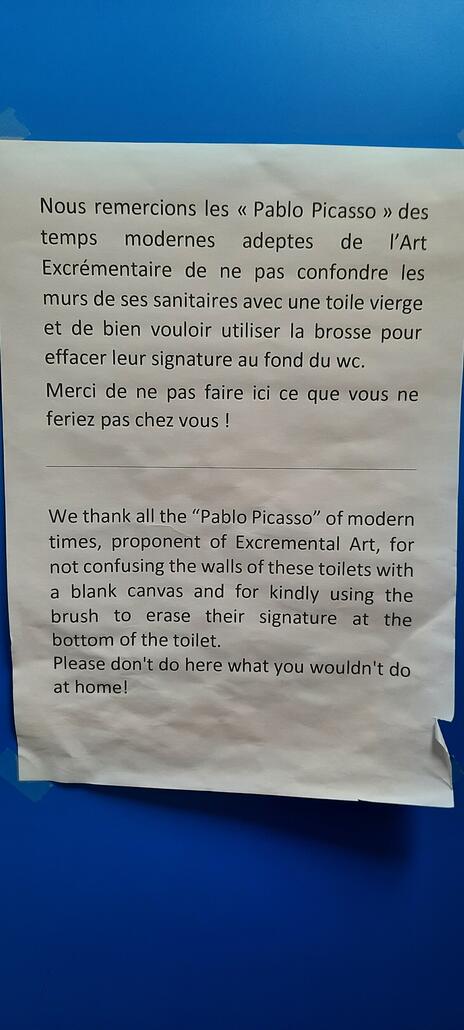 Nous remercions les « Pablo Picasso » des
temps modernes adeptes de l'Art
Excrémentaire de ne pas confondre les
murs de ses sanitaires avec une toile vierge
et de bien vouloir utiliser la brosse pour
effacer leur signature au fond du wc.
Merci de ne pas faire ici ce que vous ne
feriez pas chez vous !
We thank all the “Pablo Picasso” of modern
times, proponent of Excremental Art, for
not confusing the walls of these toilets with
a blank canvas and for kindly using the
brush to erase their signature at the
bottom of the toilet.
Please don't do here what you wouldn't do
at home!